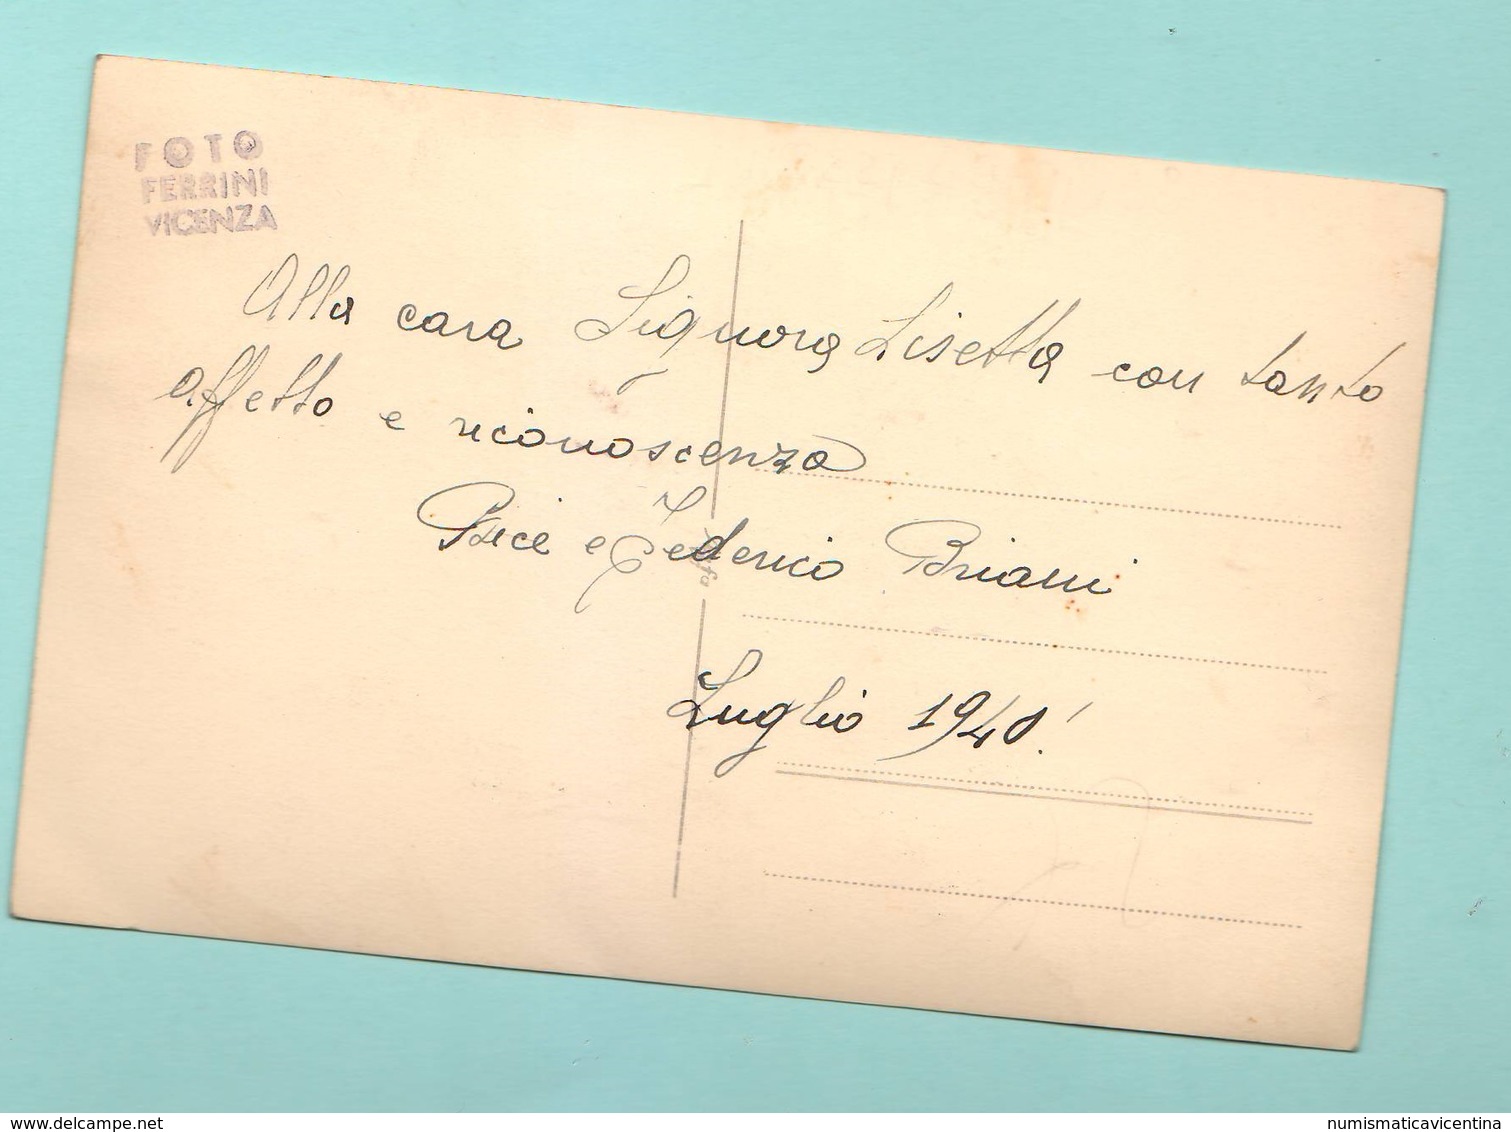 FOTO
FERRINI
VICENZA
Alla cara Signora Lisetta con tanto
affetto e riconoscenza
e Federico Briani
Luglio 1940!
www.delcampe.net
numismaticavicentina